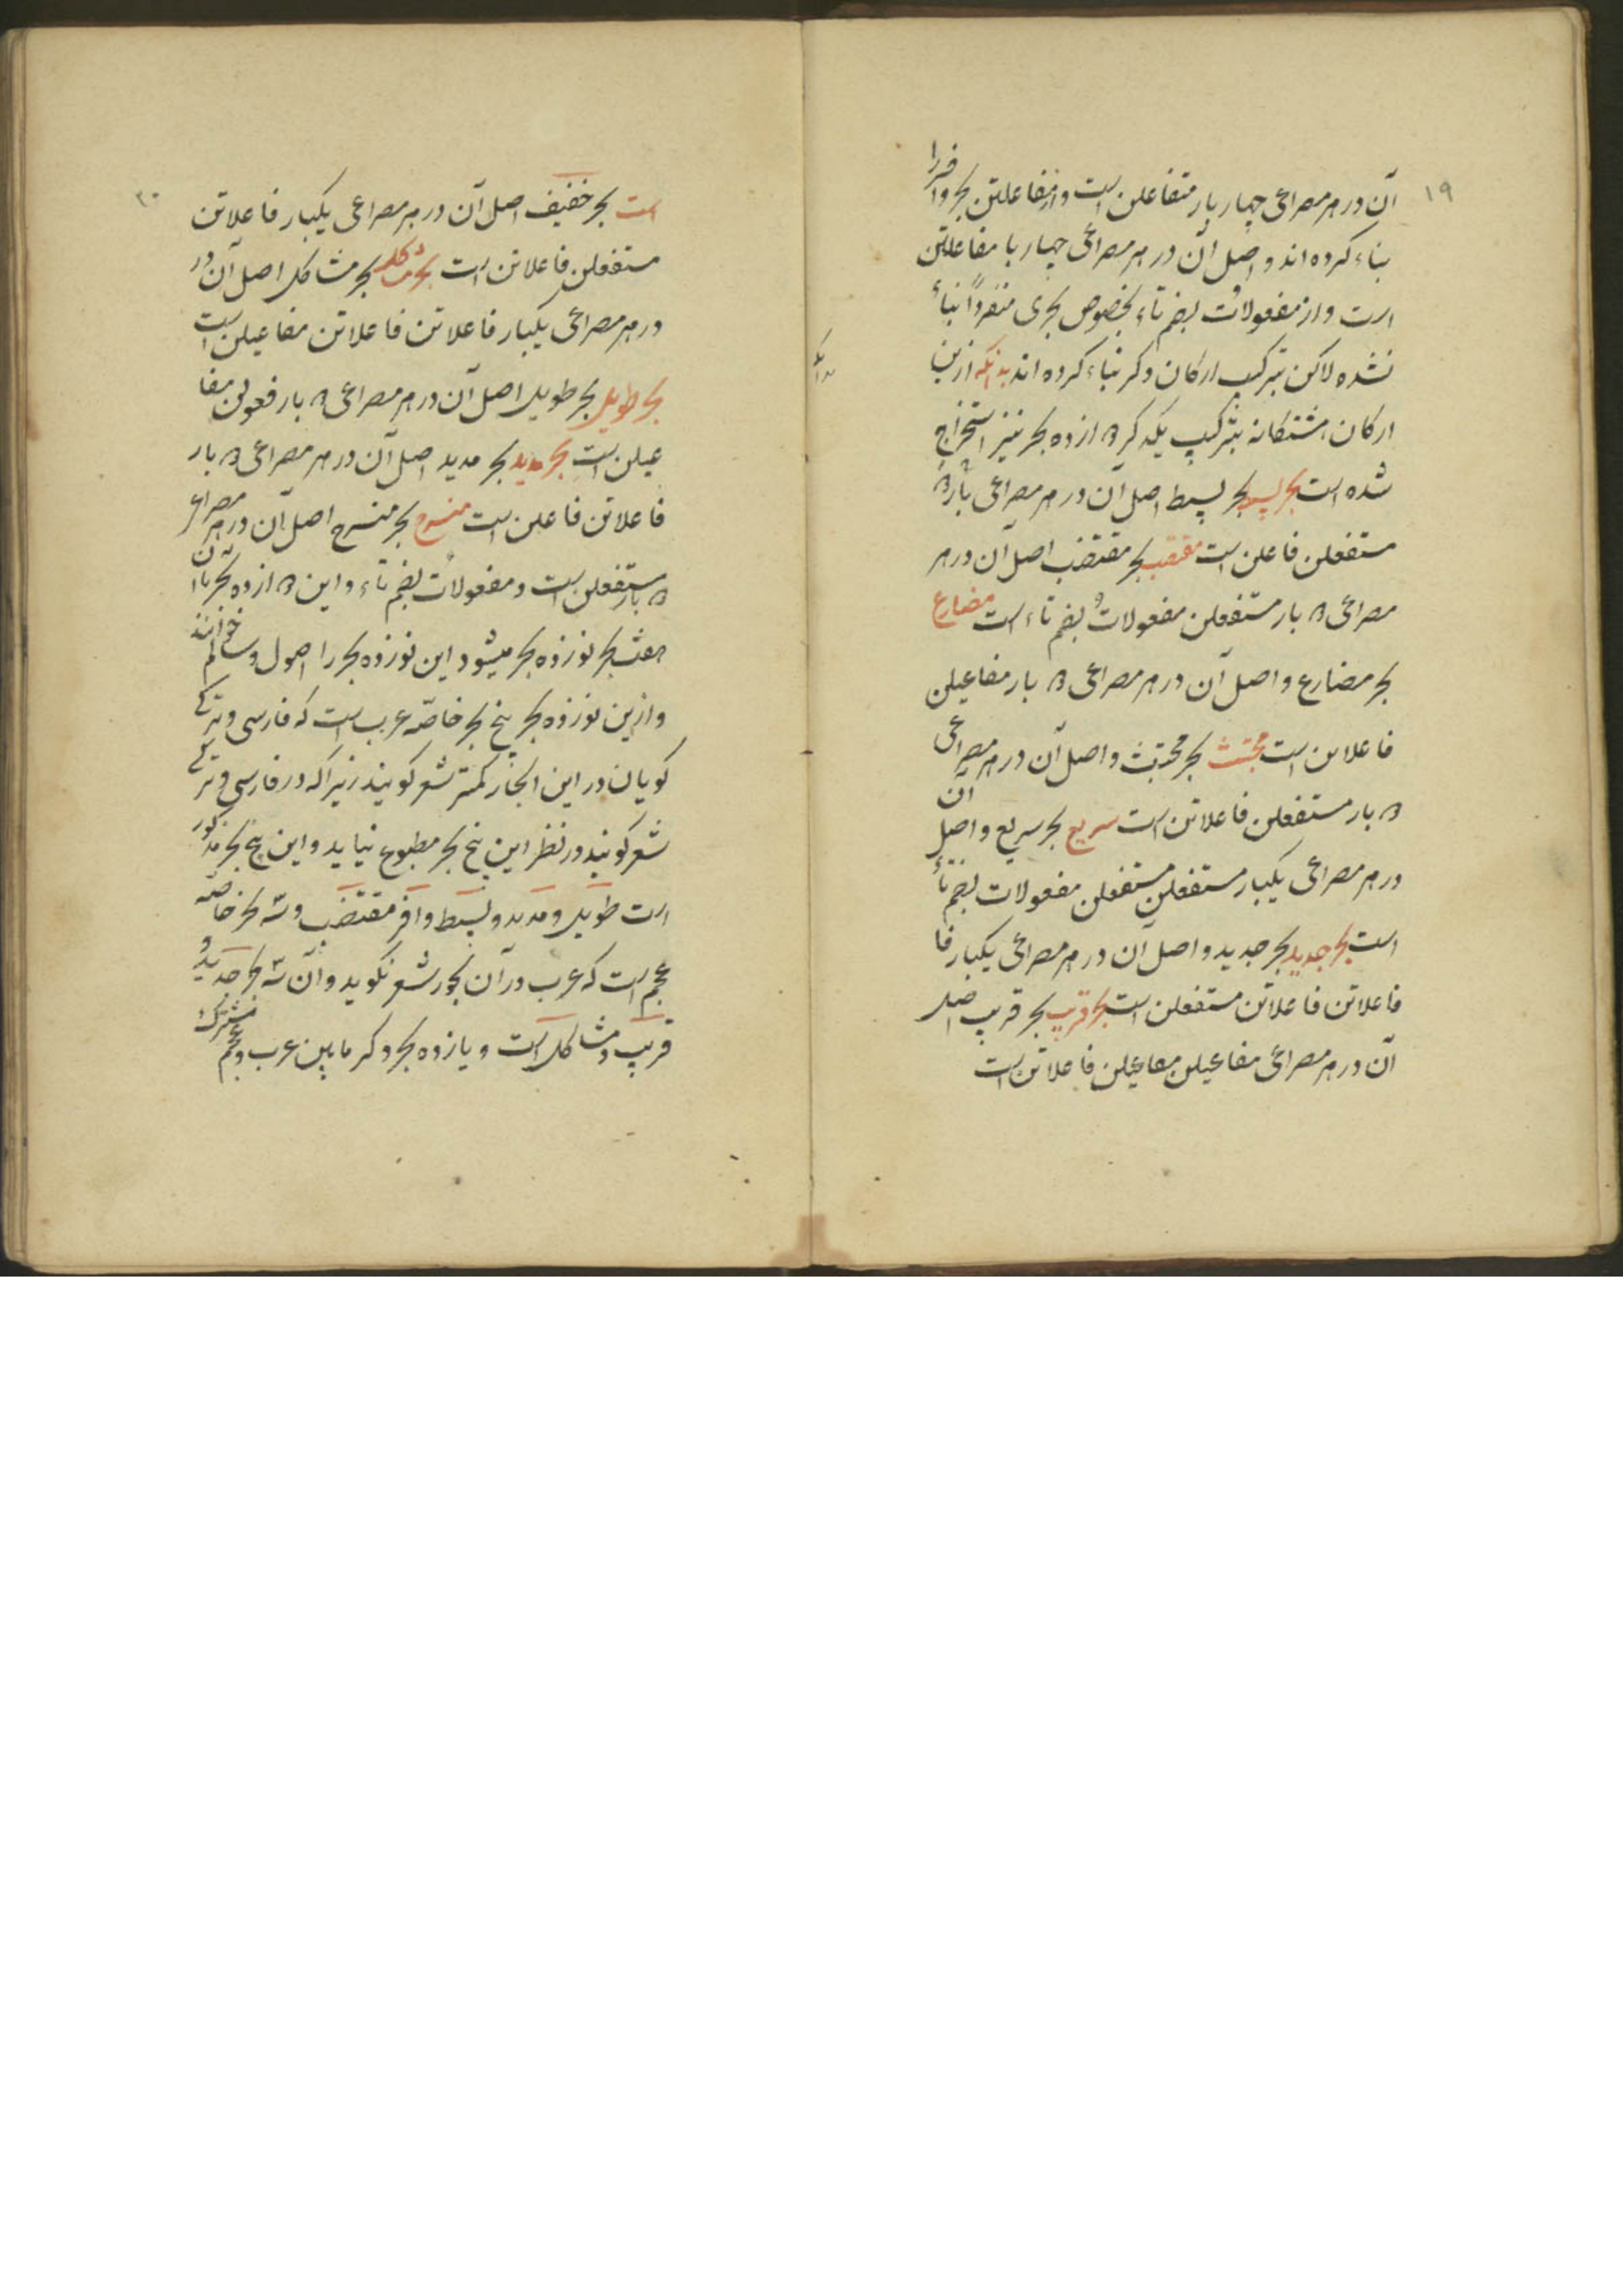 ۱۹
آن در هر مصراعی چهار بار متفاعلن است و از مفاعلتن بحر وافر را
بناء کرده اند و اصل آن در هر مصراعی چهار با مفاعلتن
است و از مفعولاتُ بضم تاء بخصوص بحری منفرداً بناء
نشده لاکن بترکیب ارکان دکر بناء کرده اند بدانکه ازین
ارکان هشتکانه بترکیب یکدکر ۱۲ از ده بحر نیز استخراج
شده است بحر بسیط بحر بسیط اصل آن در هر مصراعی ۲ بار
مستفعلن فاعلن است مقتضب بحر مقتضب اصل آن در هر
مصراعی ۲ بار مستفعلن مفعولاتُ بضم تاء است مضارع
بحر مضارع و اصل آن در هر مصراعی ۲ بار مفاعیلن
فاعلاتن است مجتث بحر مجتث و اصل آن در هر مصراعی
۲ بار مستفعلن فاعلاتن است سریع بحر سریع و اصل آن
در هر مصراعی یکبار مستفعلن مستفعلن مفعولات بضم تاء
است بحر جدید بحر جدید و اصل آن در هر مصراعی یکبار فا
فاعلاتن فاعلاتن مستفعلن است بحر قریب بحر قریب اصل
آن در هر مصراعی مفاعیلن مفاعیلن فاعلاتن است
بدانکه
۲۰
است بحر خفیف اصل آن در هر مصراعی یکبار فاعلاتن
مستفعلن فاعلاتن است بحر مشاکل بحر مشاکل اصل آن در
در هر مصراعی یکبار فاعلاتن فاعلاتن مفاعیلن است
بحر طویل بحر طویل اصل آن در هر مصراعی ۲ بار فعولن مفا
عیلن است بحر مدید بحر مدید اصل آن در هر مصراعی ۲ بار
فاعلاتن فاعلن است منسرح بحر منسرح اصل آن در هر مصراعی
۲ بار مستفعلن است و مفعولاتُ بضم تاء و این ۱۲ از ده بحر با آن
هفت بحر نوزده بحر میشود این نوزده بحر را اصول و سالم خوانند
و ازین نوزده بحر پنج بحر خاصّه عرب است که فارسی و ترکی
کویان در این ابحار کمتر شعر کویند زیراکه در فارسی و ترکی
شعر کویند در نظر این پنج بحر مطبوع نیاید و این پنج بحر مذکور
است طویل و مدید و بسیط وافر مقتضب و سه بحر خاصّه
عجم است که عرب در آن بحور شعر نکوید و آن سه بحر جدید و
قریب و مشاکل است و یازده بحر دکر مابین عرب و عجم مشترک